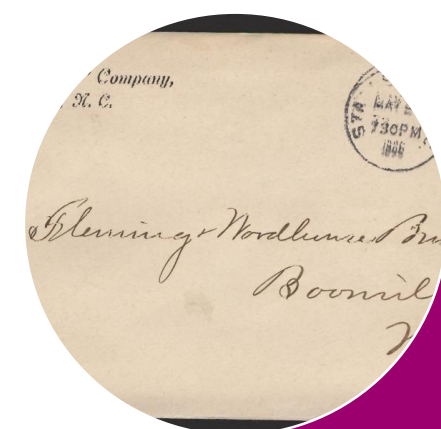 Company,
N. C.
STA
MAY 2
730PM
1896
Fleming & Woodhouse Bro
Boonvil